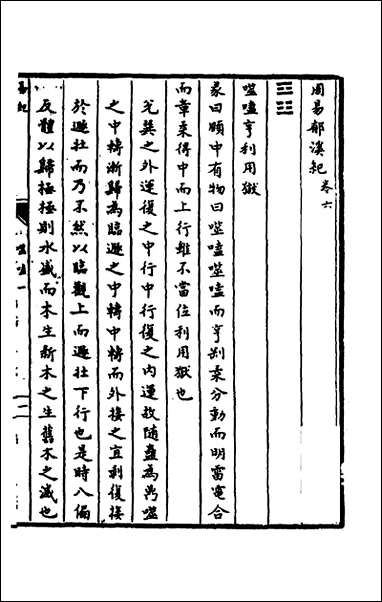 周易郁溪記 卷六
☲☳
噬嗑亨利用獄
彖曰頤中有物曰噬嗑噬嗑而亨剛柔分動而明雷電合
而章柔得中而上行雖不當位利用獄也
兌巽之外運復之中行中行復之內運故隨蠱為噬
之中轉漸歸為臨遯之中轉中轉而外接之宜利復接
於遯壯而乃不然以臨觀上而遯壯下行也是時八偏
反體以歸極極則水盛而木生新木之生舊木之滅也